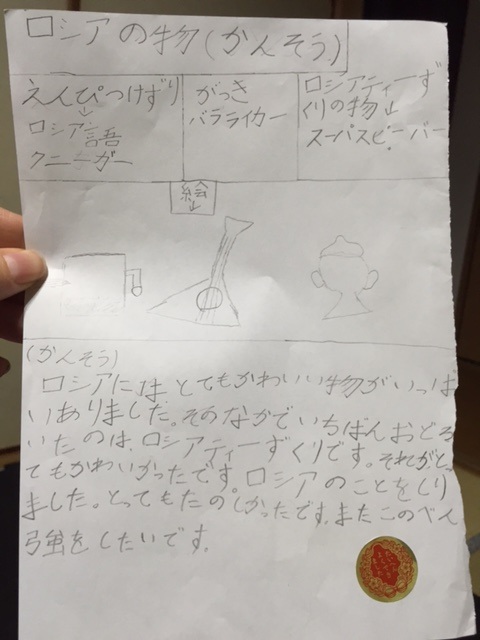 ロシアの物(かんそう)
えんぴつけずり
↓
ロシア語
クニーガー
がっき
バラライカー
ロシアティーず
くりの物↓
スーパスピーバー
絵↓
(かんそう)
ロシアには とてもかわいい物がいっぱ
いありました。そのなかでいちばんおどろ
いたのは、ロシアティーずくりです。それがと
てもかわいかったです。ロシアのことをしり
ました。とってもたのしかったです。またこのべん
強をしたいです。